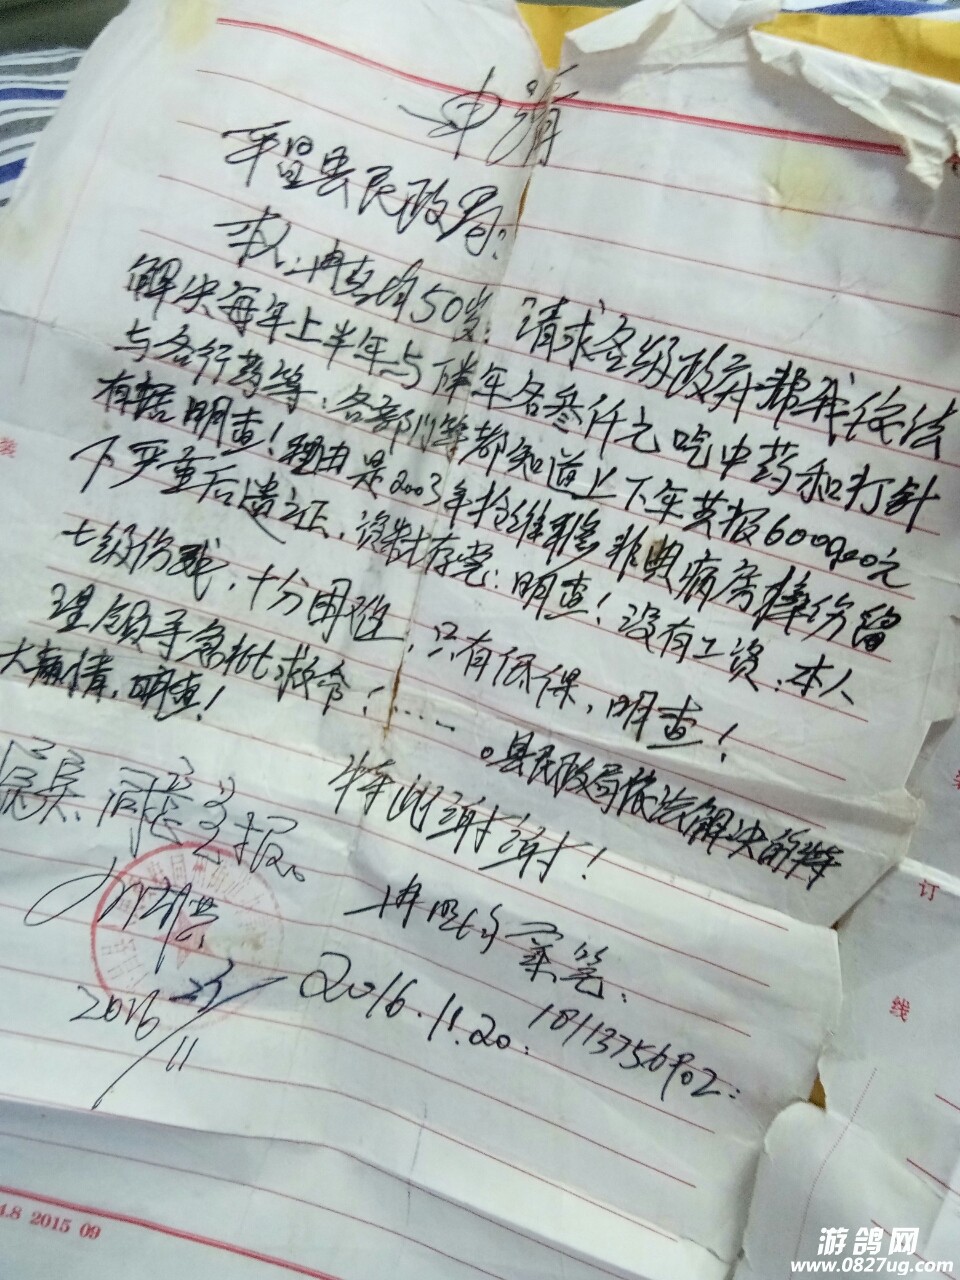 申请
平昌县民政局:
本人:冉 均50岁:请求各级政府帮我依法
解决每年上半年与 半年各叁仟元吃中药和打针
与各行药等、各部门等都知道上下年共报6000.00元
有据明查!理由是2003年抢维修非典病房摔伤留
下严重后遗之证,资料存 :明查!没有工资:本人
七级伤残,十分困难,只有低保,明查!
。县民政局依法解决的特
理领导急批救命!……
大 情,明查!
特此谢谢!
属实,同意 报。
冉 均 笔:
2016.11.20: 18113756902:
2016 23/11
装
订
线
4.8 2015 09
游鸽网
www.0827ug.com